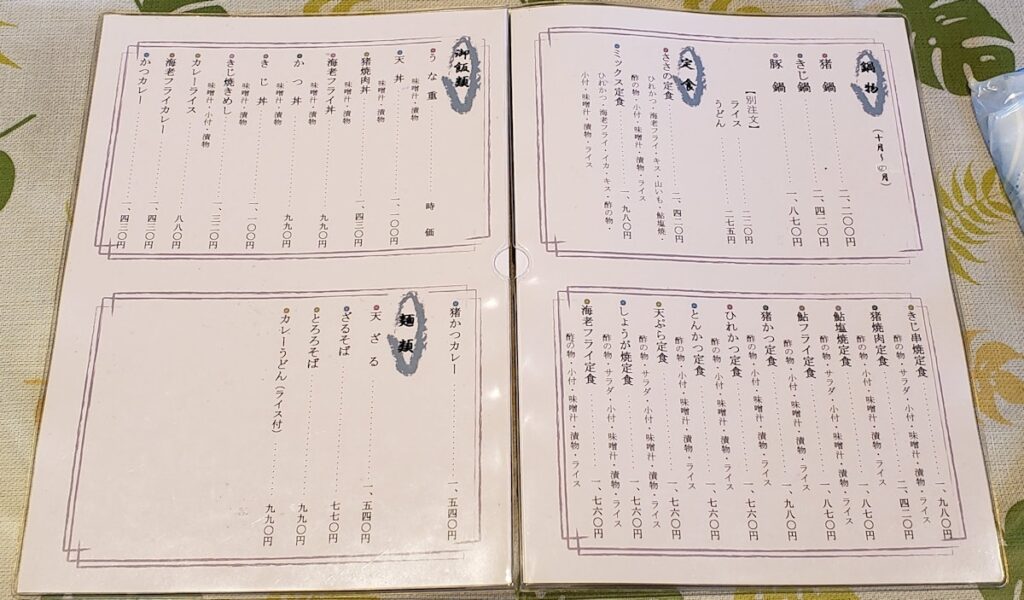 鍋物 (十月〜四月)
猪鍋 二、二〇〇円
きじ鍋 二、四二〇円
豚鍋 一、八七〇円
【別注文】
ライス 二二〇円
うどん 二七五円
定食
ささの定食 二、四二〇円
ひれかつ・海老フライ・キス・山いも・鮎塩焼・
酢の物・小付・味噌汁・漬物・ライス
ミックス定食 一、九八〇円
ひれかつ・海老フライ・イカ・キス・酢の物・
小付・味噌汁・漬物・ライス
きじ串焼定食 一、九八〇円
酢の物・サラダ・小付・味噌汁・漬物・ライス
猪焼肉定食 二、四二〇円
酢の物・小付・味噌汁・漬物・ライス
鮎塩焼定食 一、八七〇円
酢の物・サラダ・小付・味噌汁・漬物・ライス
鮎フライ定食 一、八七〇円
酢の物・小付・味噌汁・漬物・ライス
猪かつ定食 一、九八〇円
酢の物・小付・味噌汁・漬物・ライス
ひれかつ定食 一、七六〇円
酢の物・小付・味噌汁・漬物・ライス
とんかつ定食 一、七六〇円
酢の物・小付・味噌汁・漬物・ライス
天ぷら定食 一、七六〇円
酢の物・サラダ・小付・味噌汁・漬物・ライス
しょうが焼定食 一、七六〇円
酢の物・サラダ・小付・味噌汁・漬物・ライス
海老フライ定食 一、七六〇円
酢の物・小付・味噌汁・漬物・ライス
御飯類
うな重 時価
味噌汁・漬物
天丼 一、二〇〇円
味噌汁・漬物
猪焼肉丼 一、四三〇円
味噌汁・漬物
海老フライ丼 九九〇円
味噌汁・漬物
かつ丼 九九〇円
味噌汁・漬物
きじ丼 一、一〇〇円
味噌汁・漬物
きじ焼きめし 一、三二〇円
味噌汁・小付・漬物
カレーライス 八八〇円
海老フライカレー 一、四三〇円
かつカレー 一、四三〇円
猪かつカレー 一、五四〇円
麺類
天ざる 一、五四〇円
ざるそば 七七〇円
とろろそば 九九〇円
カレーうどん(ライス付) 九九〇円